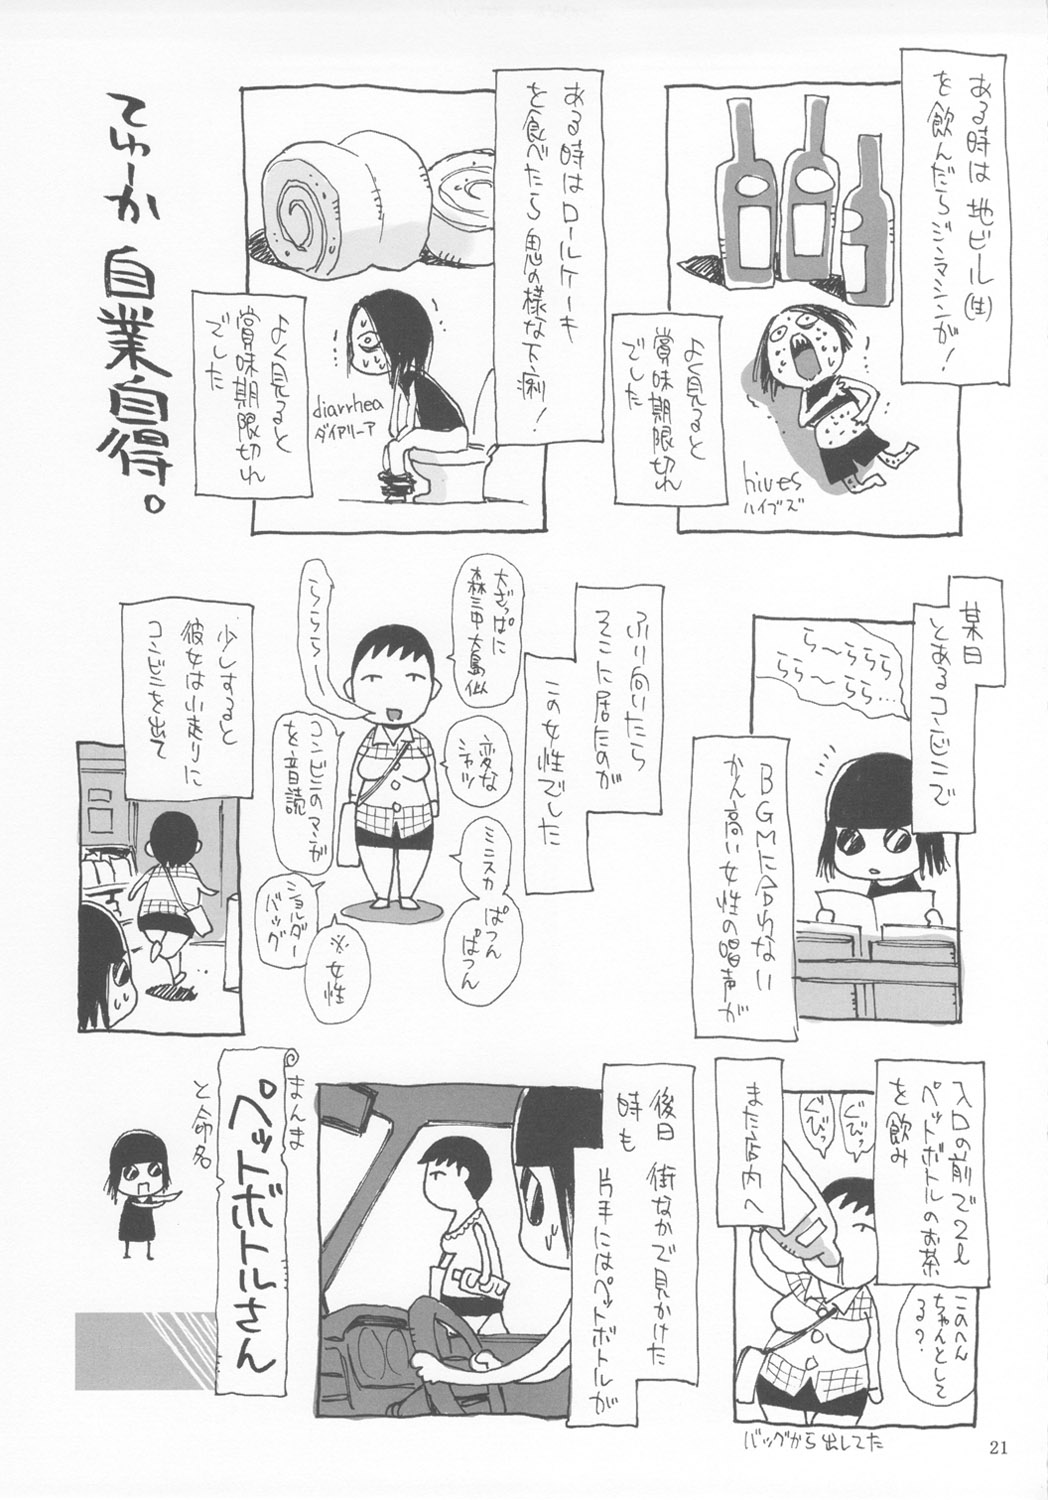 ある時は 地ビール(生)
を飲んだらジンマシンが!
よく見ると
賞味期限切れ
でした
hives
ハイブズ
ある時はロールケーキ
を食べたら 鬼の様な下痢!
diarrhea
ダイアリーア
よく見ると
賞味期限切れ
でした
てゆーか 自業自得。
某日
とあるコンビニで
ら〜ららら
らら〜らら…
BGMに合わない
かん高い女性の唱声が
ふり向いたら
そこに居たのが
この女性でした
大ざっぱに
森三中大島似
ららら〜
変な
シャツ
コンビニのマンガ
を音読
ミニスカ ぱつん
ぱつん
ショルダー
バッグ
※女性
少しすると
彼女は小走りに
コンビニを出て
入口の前で2ℓ
ペットボトルのお茶
を飲み
ぐびっ
ぐびっ
このへん
ちゃんとして
る?
バッグから出してた
また店内へ
後日 街なかで見かけた
時も 片手にはペットボトルが
まんま
ペットボトルさん
と命名
21